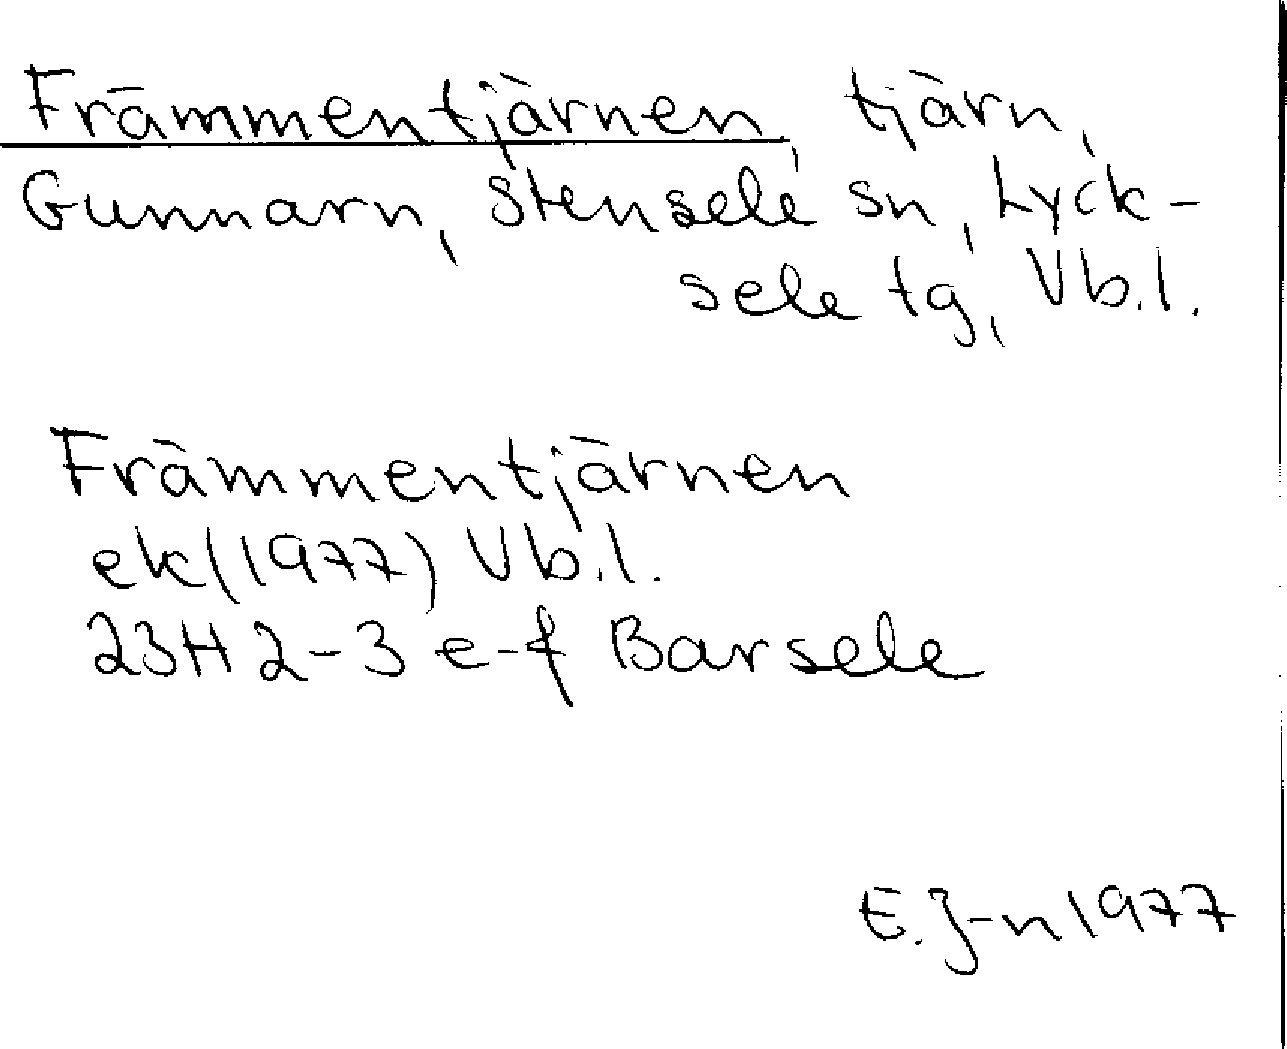 Främmentjärnen, tjärn,
Gunnarn, Stensele sn, Lyck-
sele tg, Vb.l.
Främmentjärnen
ek(1977) Vb.l.
23H 2-3 e-f Barsele
E.J-n 1977